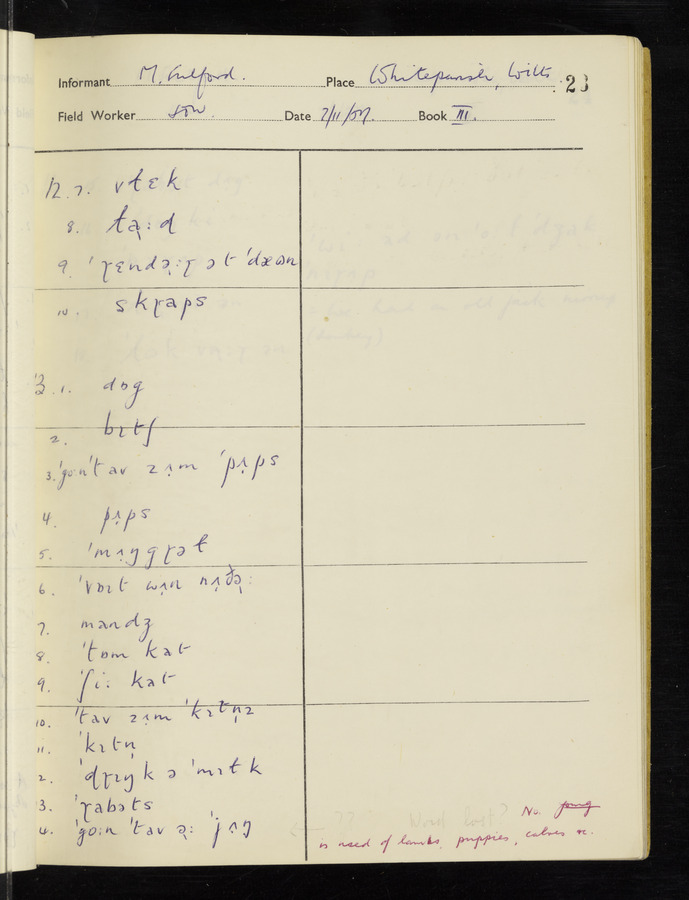 Informant M. Gulford. Place Whiteparish, Wilts. 23
Field Worker SFW. Date 7/11/57. Book III.
12. 7. vɫɛk
8. ta̩ːd
9. ət ˈdæʊn
10. skɽaps
13. 1. dɒg
2. bɪtʃ
3. ˈgoːnˈt av zʌ̣m ˈpʌ̣ps
4. pʌ̣ps
5. ˈmʌ̣ŋgɽəɫ
6. ˈvɒɪt wʌ̣n nʌ̣ðə̩ː
7. mandʒ
8. ˈtɒm kat
9. ˈʃiː kat
10. ˈtav zʌ̣m ˈkɪtn̩z
11. ˈkɪtn̩
2. ˈdɽɪŋk ə ˈmɪɫk
3. ˈɽabəts
4. ˈgoːn ˈtav ə̩ː ˈjʌ̣ŋ
?? Word lost? No. jung
is used of lambs, puppies, calves &c.